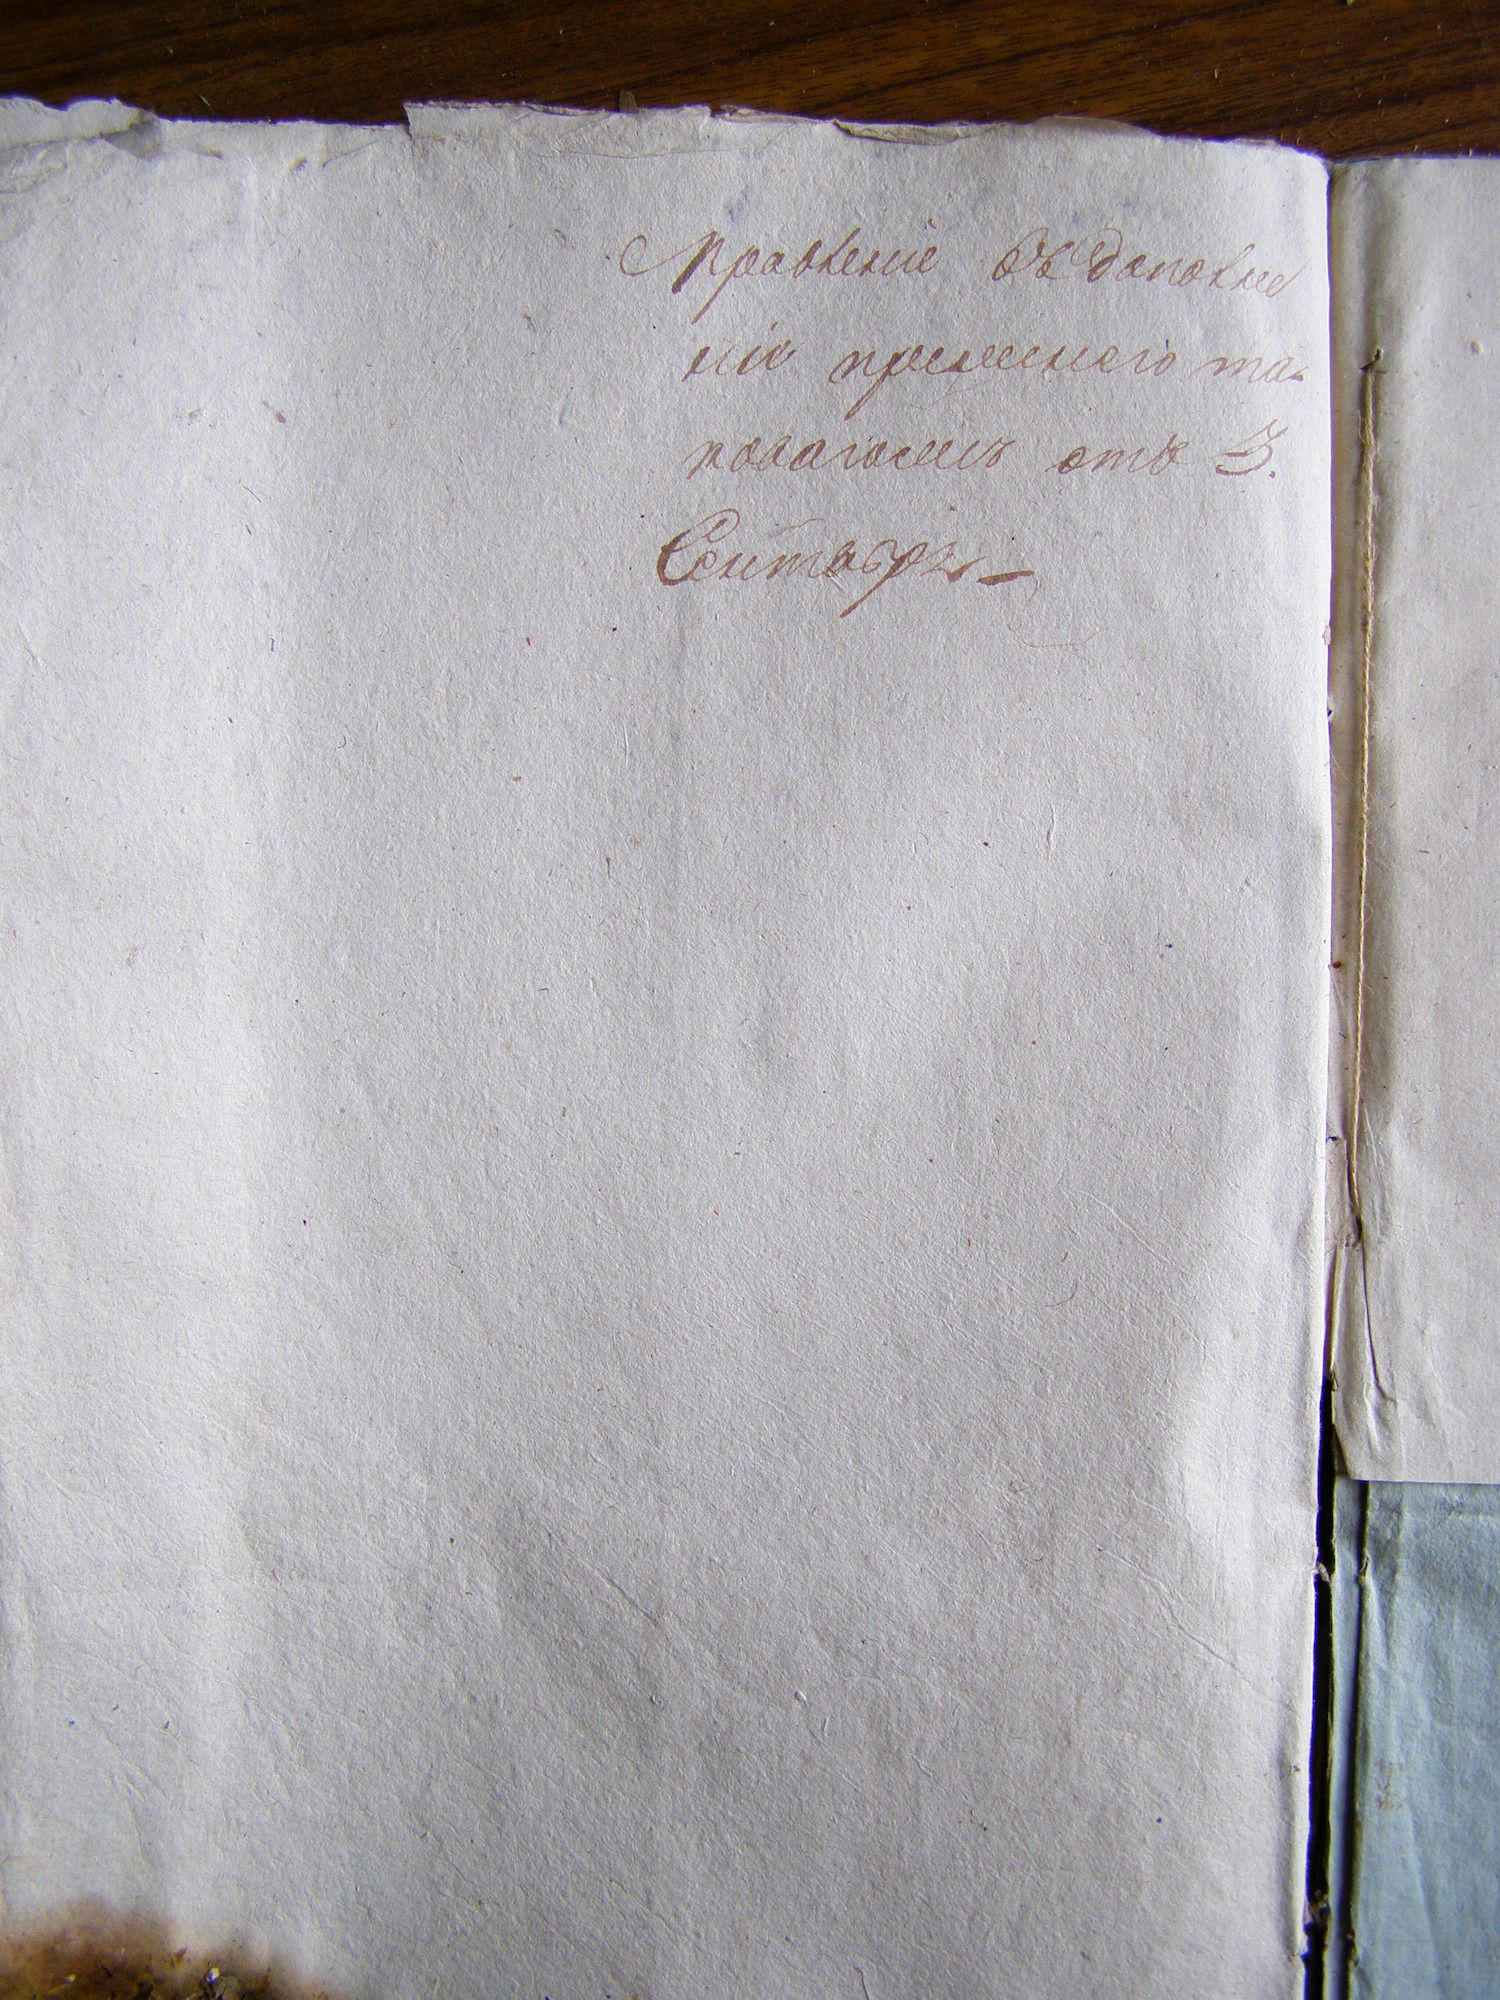 Правленіе въ дополне
ніе прежняго та
полагаемъ отъ 3.
Сентября –